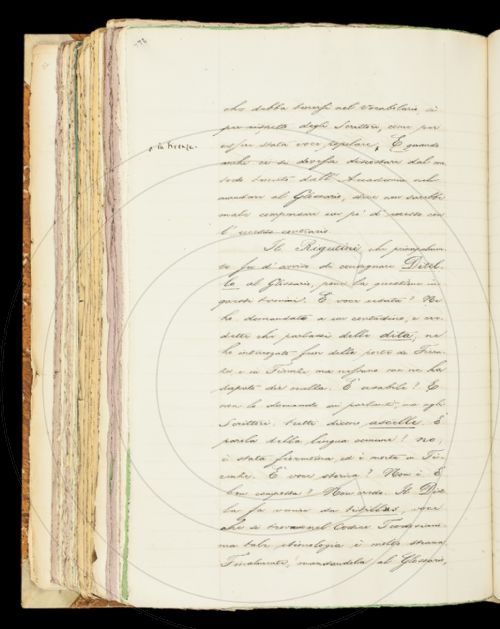 che debba tenersi nel Vocabolario, sì
per rispetto degli Scrittori, come per
esser stata voce popolare; E quando
anche ci si dovesse discostare dal
tenuto dall' Accademia nel
mandare al Glossario, non sarebbe
male compensare un po' di eccesso con
l'eccesso contrario
Il Rigutini che primamen-
te fu d'avviso di consegnare Ditel-
lo al Glossario, pone la questione in
questi termini. È voce usata? Ne
ho domandato a un contadino, e
che parlassi delle dita, ne
ho interrogato fuor delle porte di Firen-
ze, e in Firenze ma nessuno me ne ha
saputo dir nulla. È usabile? E
non lo domando ai parlanti, ma agli
Scrittori: tutti dicono ascelle. È
parola della lingua comune? No;
è stata fiorentina, ed è morta a Fi-
renze. È voce storica? Non è. È
ben composta? Non credo. Il
fa venire da titillus, voce
che si trova nel Codice Teodosiano
ma tale etimologia è molto strana
Finalmente, mandandola al Glossario,
o la Firenze.